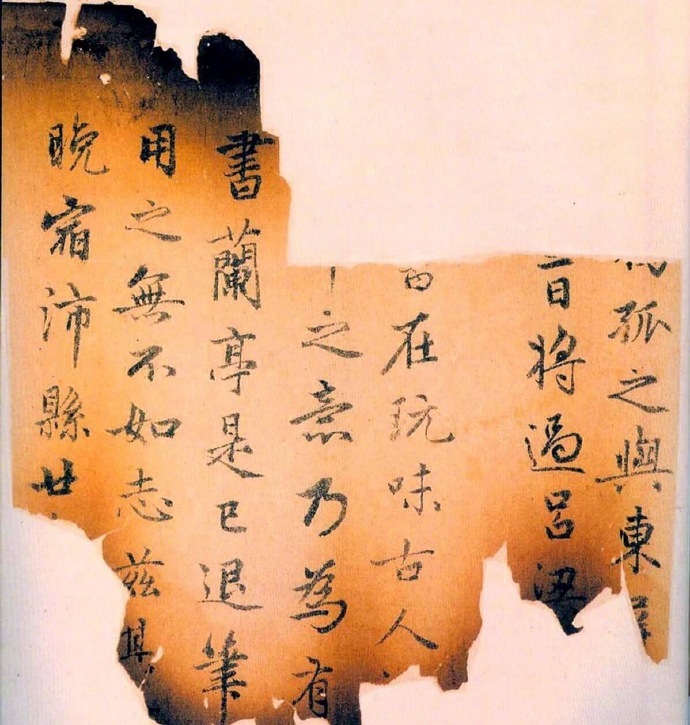 孤之與東
日將過呂梁
在玩味古人
之意乃為有
書蘭亭是已退筆
用之無不如志茲其
晚宿沛縣廿